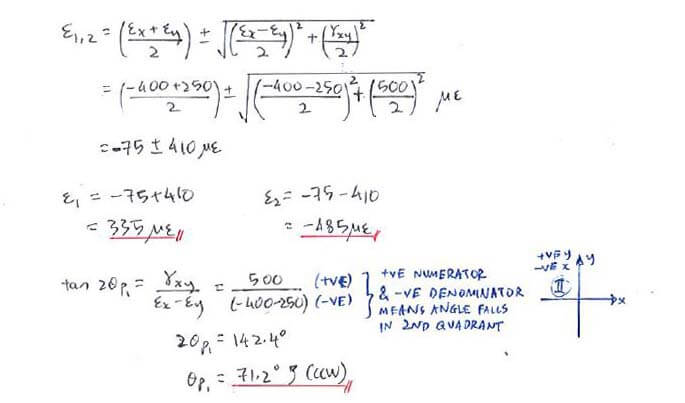 ε1,2 = ((εx+εy)/2) ± √(((εx−εy)/2)² + (γxy/2)²)
= ((-400+250)/2) ± √(((-400-250)/2)² + (500/2)²) με
= -75 ± 410 με
ε1 = -75+410 ε2 = -75-410
= 335 με = -485 με
tan 2θp1 = γxy/(εx−εy) = 500/(-400-250) (+VE) (-VE)
+VE NUMERATOR
& -VE DENOMINATOR
MEANS ANGLE FALLS
IN 2ND QUADRANT
+VE y
-VE x
y
II
x
2θp1 = 142.4°
θp1 = 71.2° (CCW)